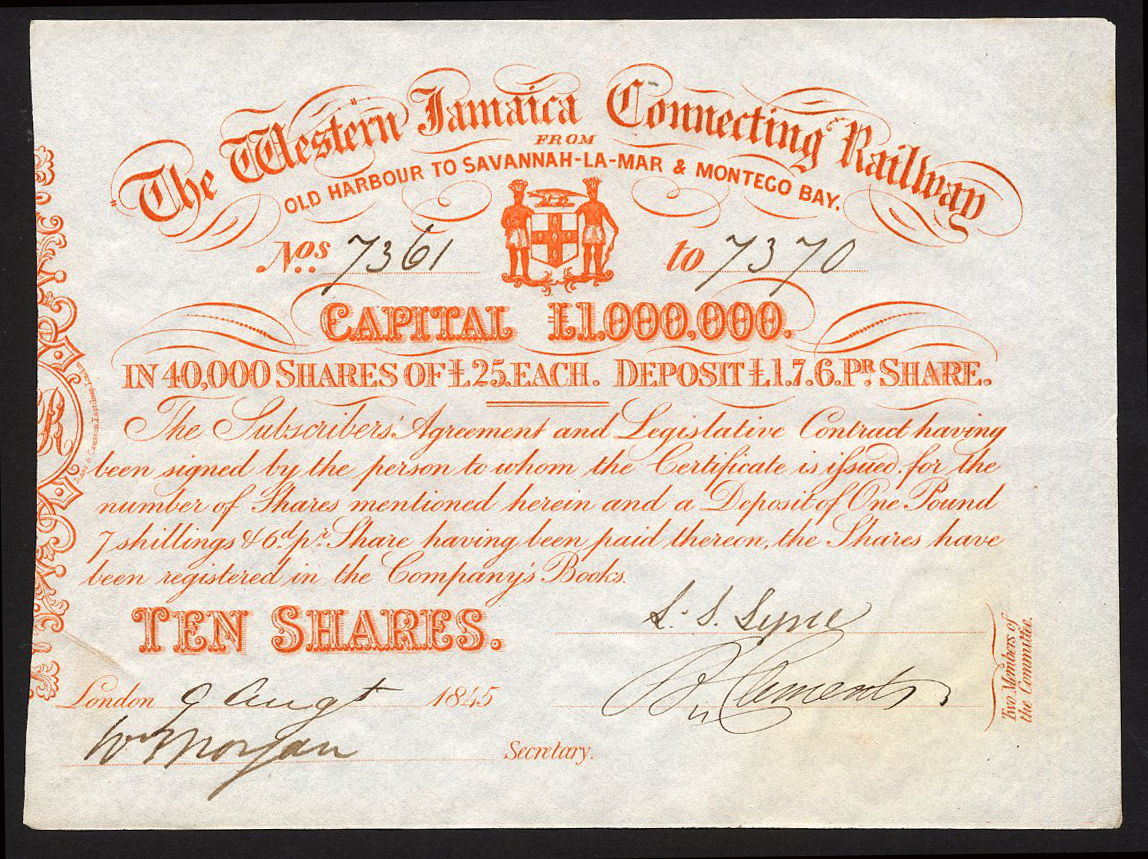 "The Western" Jamaica Connecting Railway
FROM
OLD HARBOUR TO SAVANNAH-LA-MAR & MONTEGO BAY.
Nos. 7361 to 7370
CAPITAL £1,000,000.
IN 40,000 SHARES OF £25. EACH. DEPOSIT £1.7.6. PR. SHARE.
The Subscribers' Agreement and Legislative Contract having
been signed by the person to whom the Certificate is issued, for the
number of Shares mentioned herein and a Deposit of One Pound
7 shillings & 6d. pr. Share having been paid thereon, the Shares have
been registered in the Company's Books.
TEN SHARES.
Two Members of
the Committee.
London 9 Augt 1845
Wm Morgan Secretary.